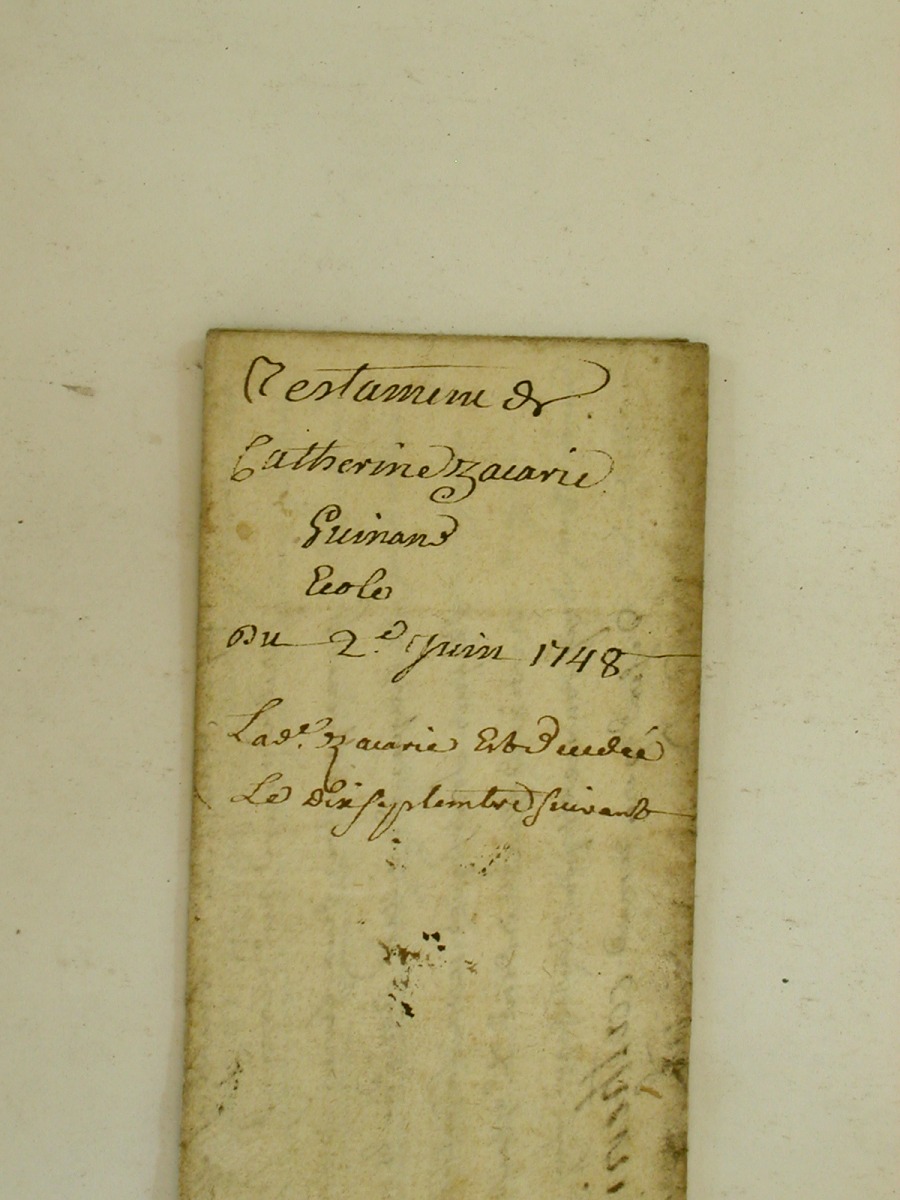 Testament de
Catherine Zacarie
Guinand
Ecole
Du 2.e Juin 1748
Lad.e Zacarie Est Decedée
Le dix septembre suivant